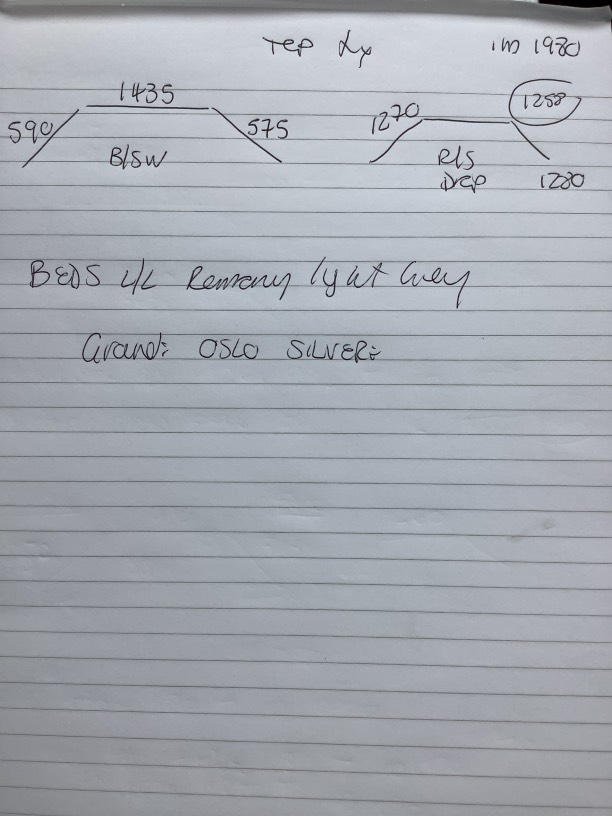 TEP Lx IM 1980
1435
590 575
B/SW
1270 1258
R/S
Drop 1280
BEDS L/L Remeny light Grey
Grand: OSLO SILVER: